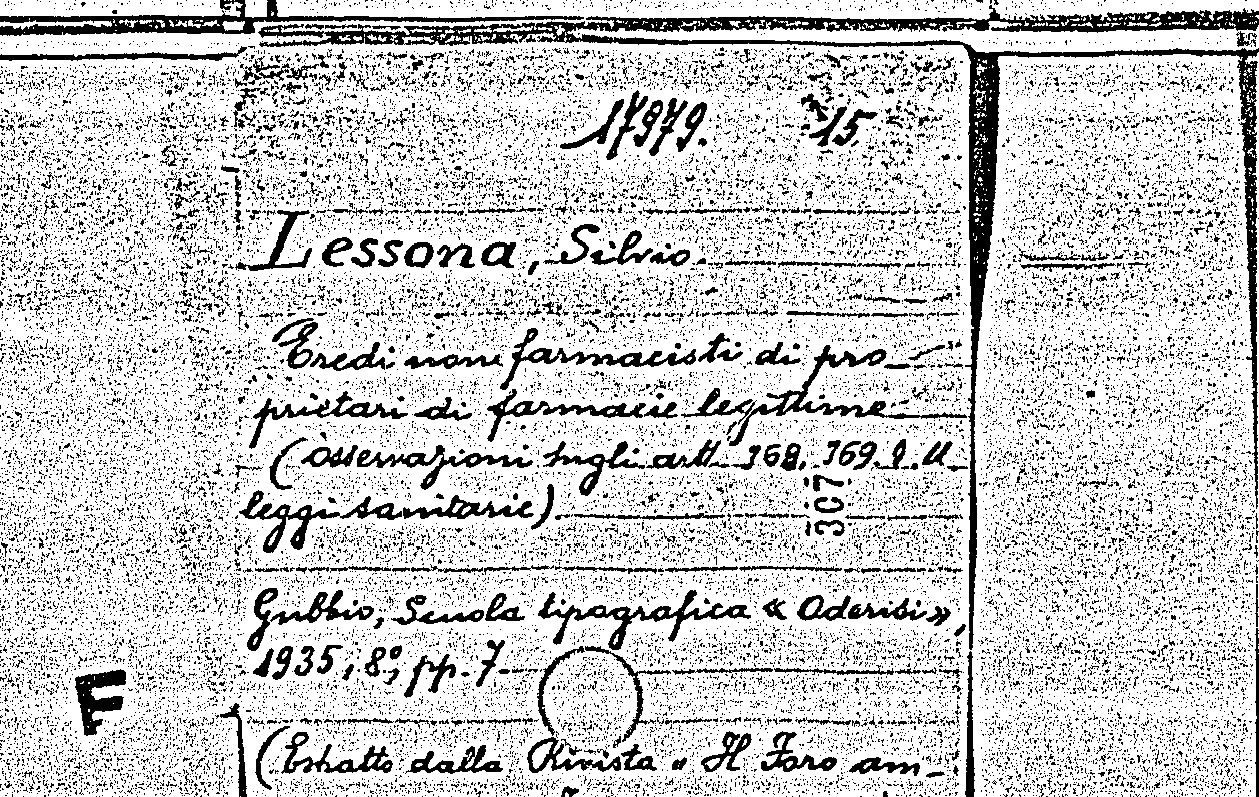 17979. 15
Lessona, Silvio.
Eredi non farmacisti di pro
prietari di farmacie legittime
(Osservazioni sugli artt. 368, 369. T. U.
leggi sanitarie)
307
Gubbio, Scuola tipografica « Oderisi »,
1935, 8º, pp. 7.
F
(Estratto dalla Rivista « Il Foro am-